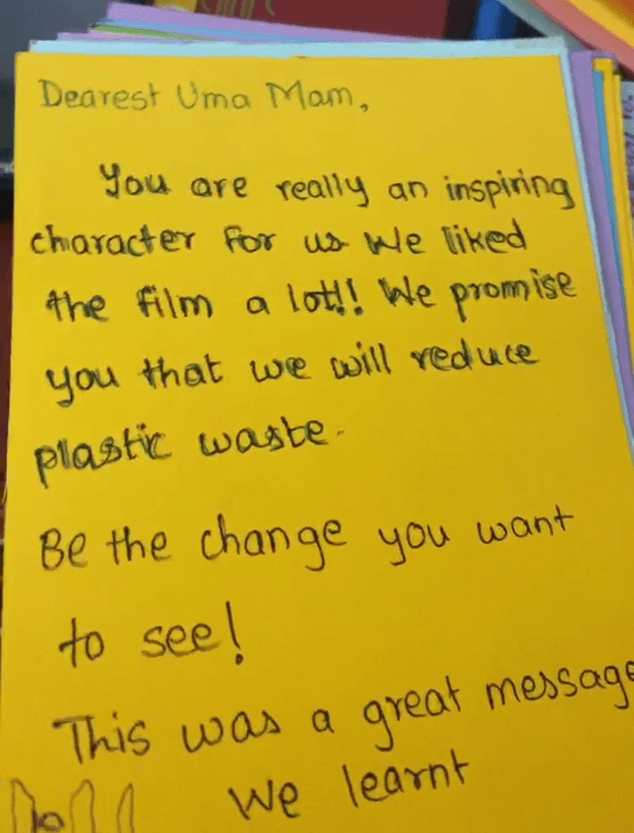 Dearest Uma Mam,
You are really an inspiring
character for us We liked
the film a lot!! We promise
you that we will reduce
plastic waste.
Be the change you want
to see!
This was a great message
We learnt